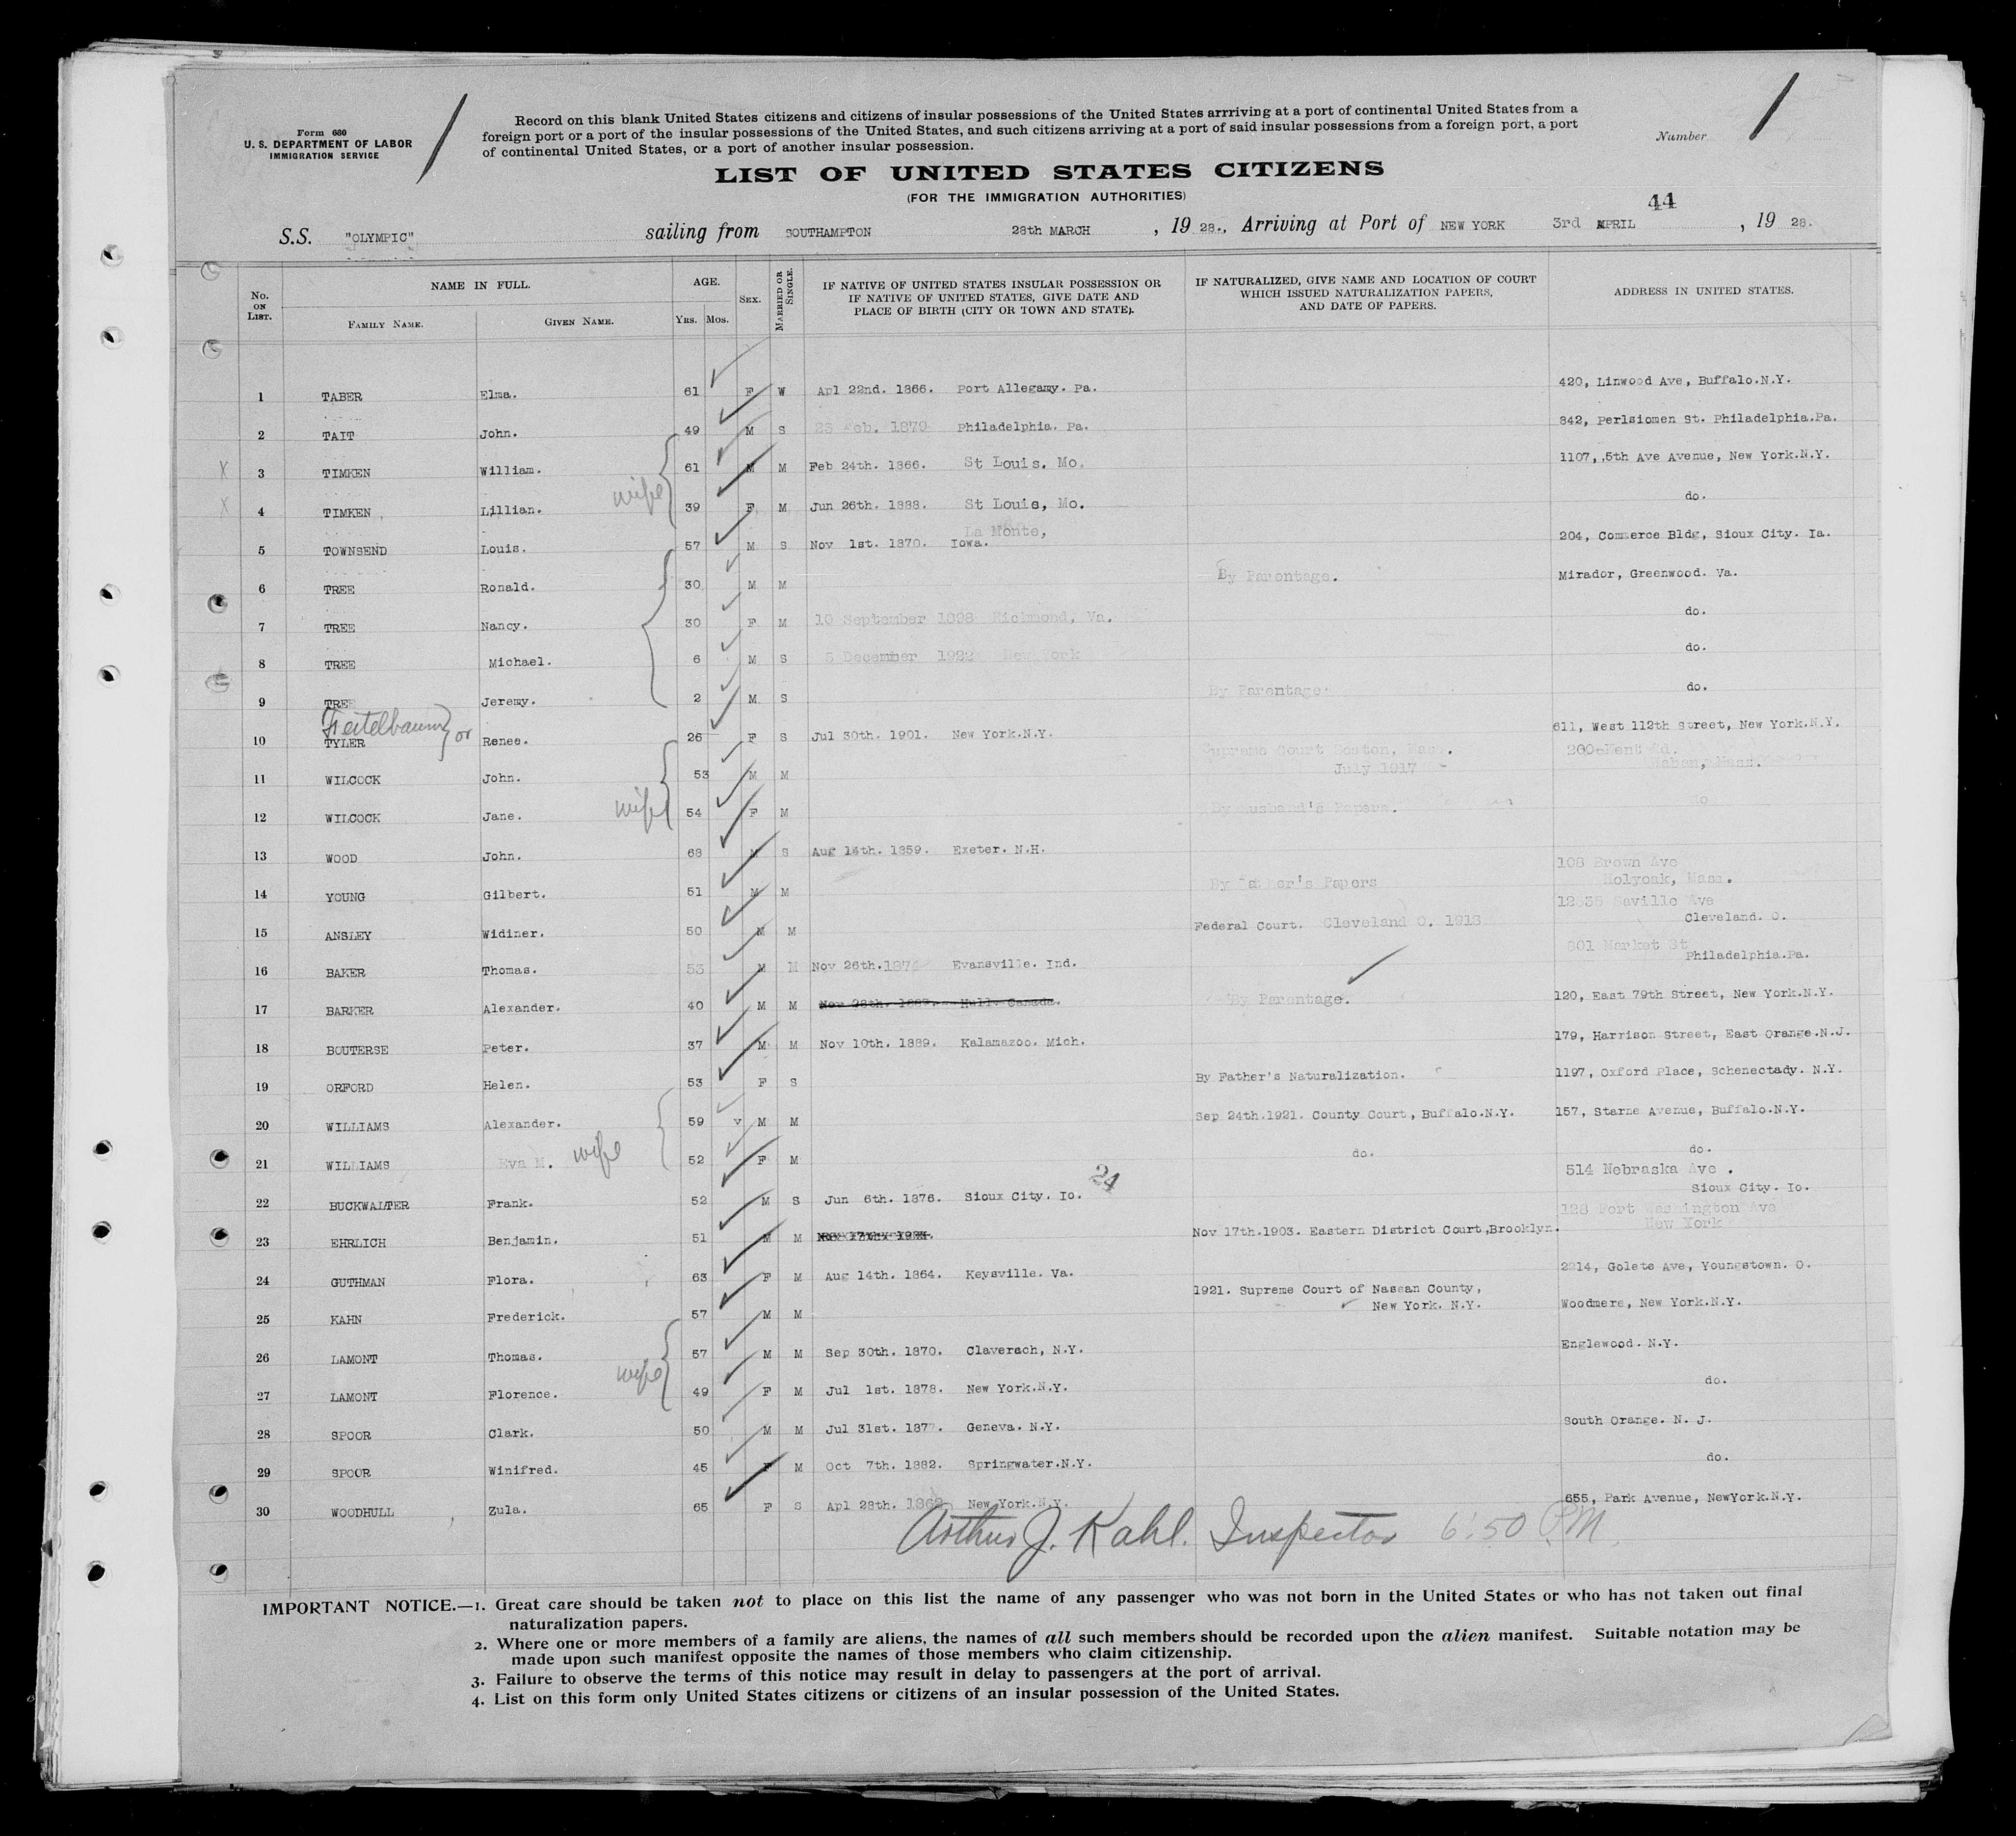 Form 630
U. S. DEPARTMENT OF LABOR
IMMIGRATION SERVICE
Record on this blank United States citizens and citizens of insular possessions of the United States arrriving at a port of continental United States from a
foreign port or a port of the insular possessions of the United States, and such citizens arriving at a port of said insular possessions from a foreign port, a port
of continental United States, or a port of another insular possession.
Number 1
LIST OF UNITED STATES CITIZENS
(FOR THE IMMIGRATION AUTHORITIES)
44
S.S. "OLYMPIC" sailing from SOUTHAMPTON 28th MARCH , 19 28., Arriving at Port of NEW YORK 3rd APRIL , 19 28.
No. ON LIST. NAME IN FULL. FAMILY NAME. GIVEN NAME. AGE. YRS. MOS. SEX. MARRIED OR SINGLE. IF NATIVE OF UNITED STATES INSULAR POSSESSION OR IF NATIVE OF UNITED STATES, GIVE DATE AND PLACE OF BIRTH (CITY OR TOWN AND STATE). IF NATURALIZED, GIVE NAME AND LOCATION OF COURT WHICH ISSUED NATURALIZATION PAPERS, AND DATE OF PAPERS. ADDRESS IN UNITED STATES.
1 TABER Elma. 61 F W Apl 22nd. 1866. Port Allegamy. Pa. 420, Linwood Ave, Buffalo.N.Y.
2 TAIT John. 49 M S Feb. 1879 Philadelphia. Pa. 842, Perlsiomen St. Philadelphia.Pa.
X 3 TIMKEN William. 61 M M Feb 24th. 1866. St Louis. Mo. 1107,.5th Ave Avenue, New York.N.Y.
X 4 TIMKEN Lillian. wife 39 F M Jun 26th. 1888. St Louis, Mo. do.
5 TOWNSEND Louis. 57 M S Nov 1st. 1870. La Monte, Iowa. 204, Commerce Bldg, Sioux City. Ia.
6 TREE Ronald. 30 M M By Parentage. Mirador, Greenwood. Va.
7 TREE Nancy. 30 F M 10 September 1898 Richmond, Va. do.
8 TREE Michael. 6 M S 5 December 1922 New York do.
9 TREE Jeremy. 2 M S By Parentage. do.
10 Treitelbaum or TYLER Renee. 26 F S Jul 30th. 1901. New York.N.Y. 611, West 112th Street, New York.N.Y.
11 WILCOCK John. 53 M M Supreme Court Boston, Mass. July 1917 Waban, Mass.
12 WILCOCK Jane. wife 54 F M By Husband's Papers. do
13 WOOD John. 68 M S Aug 14th. 1859. Exeter. N.H.
14 YOUNG Gilbert. 51 M M By Father's Papers 108 Brown Ave Holyoak, Mass.
15 ANSLEY Widiner. 50 M M Federal Court. Cleveland O. 1918 Saville Ave Cleveland. O.
16 BAKER Thomas. 53 M M Nov 26th.1874 Evansville. Ind. 801 Market St Philadelphia.Pa.
17 BARKER Alexander. 40 M M Nov 28th. 1887. Hull. Canada. By Parentage. 120, East 79th Street, New York.N.Y.
18 BOUTERSE Peter. 37 M M Nov 10th. 1889. Kalamazoo. Mich. 179, Harrison Street, East Orange.N.J.
19 ORFORD Helen. 53 F S By Father's Naturalization. 1197, Oxford Place, Schenectady. N.Y.
20 WILLIAMS Alexander. 59 v M M Sep 24th.1921. County Court, Buffalo.N.Y. 157, Starne Avenue, Buffalo.N.Y.
21 WILLIAMS Eva M. wife 52 F M do. do.
24
22 BUCKWALTER Frank. 52 M S Jun 6th. 1876. Sioux City. Io. 514 Nebraska Ave. Sioux City. Io.
23 EHRLICH Benjamin. 51 M M Nov 17th.1903. Eastern District Court,Brooklyn. 128 Fort Washington Ave New York
24 GUTHMAN Flora. 63 F M Aug 14th. 1864. Keysville. Va. 2214, Golete Ave, Youngstown. O.
25 KAHN Frederick. 57 M M 1921. Supreme Court of Nassan County, New York. N.Y. Woodmere, New York.N.Y.
26 LAMONT Thomas. 57 M M Sep 30th. 1870. Claverach, N.Y. Englewood. N.Y.
27 LAMONT Florence. wife 49 F M Jul 1st. 1878. New York.N.Y. do.
28 SPOOR Clark. 50 M M Jul 31st. 1877. Geneva. N.Y. South Orange. N. J.
29 SPOOR Winifred. 45 F M Oct 7th. 1882. Springwater.N.Y. do.
30 WOODHULL Zula. 65 F S Apl 28th. New York.N.Y. 655, Park Avenue, NewYork.N.Y.
Arthur J. Kahl. Inspector 6:50 P.M.
IMPORTANT NOTICE.—1. Great care should be taken not to place on this list the name of any passenger who was not born in the United States or who has not taken out final
naturalization papers.
2. Where one or more members of a family are aliens, the names of all such members should be recorded upon the alien manifest. Suitable notation may be
made upon such manifest opposite the names of those members who claim citizenship.
3. Failure to observe the terms of this notice may result in delay to passengers at the port of arrival.
4. List on this form only United States citizens or citizens of an insular possession of the United States.